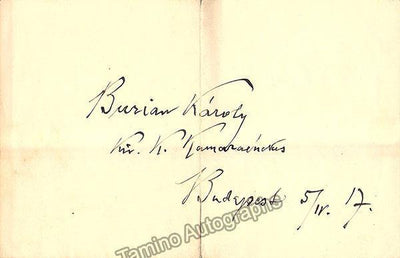 Burian Károly
Kir. K. Kamaraénekes
Budapest 5/IV. 17.
Tamino Autographs